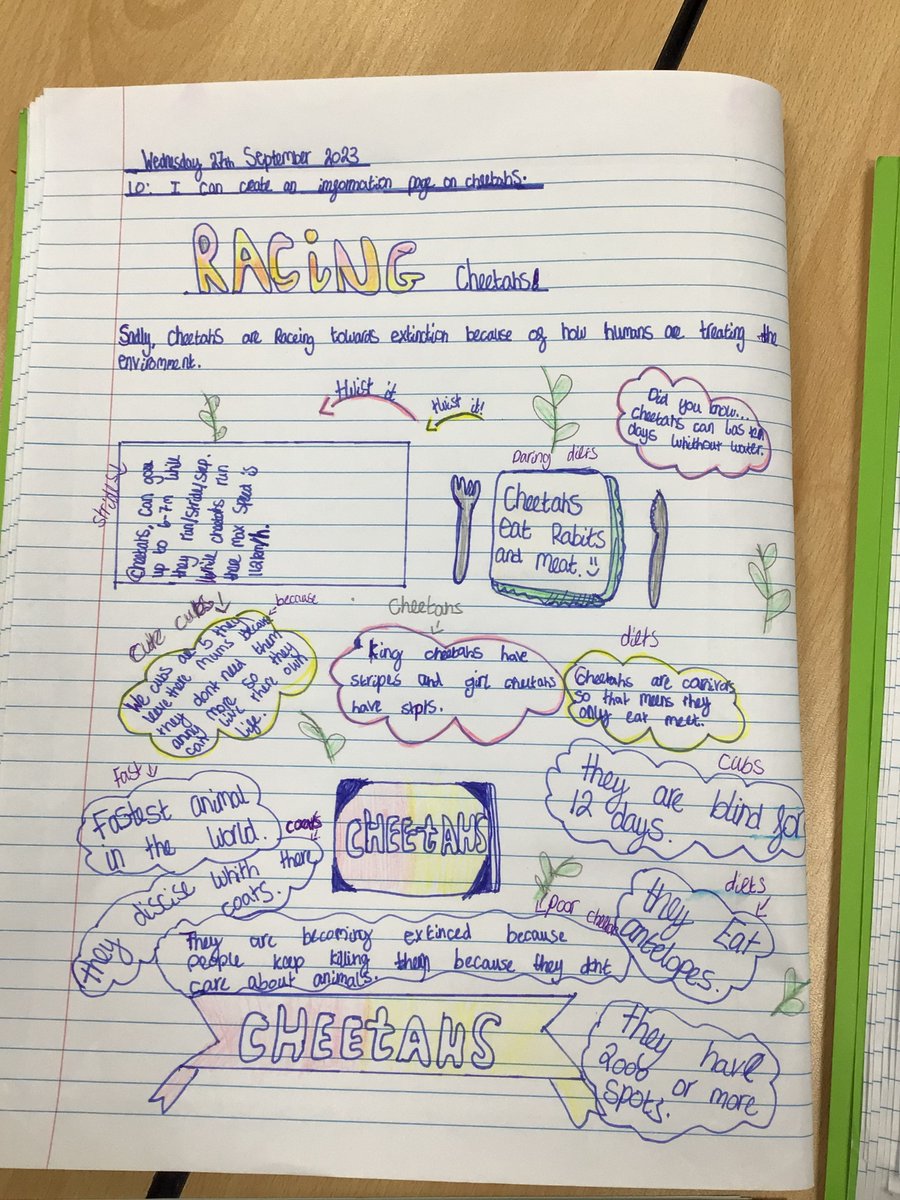 Wednesday 27th September 2023
LO: I can create an imformation page on cheetahs.
RACiNG Cheetahs!
Sadly, cheetahs are Raceing towards extinction because of how humans are treating the
enviromment.
twist it
twist it!
Did you know...
cheetahs can las ten
days whithout water.
Strides
Cheetahs, Can you
up to 6-7m while
they ran/stride/step.
While cheetahs run
there max speed is
112km/h.
Daring diets
Cheetahs
eat Rabits
and meat.
Cute cubs
because
We cubs are 5 they
leave there mums becaus
they dont need them
anny more so they
can live there own
life.
Cheetahs
King cheetahs have
stripes and girl cheetahs
have stpts.
diets
Cheetahs are carnivars
so that means they
only eat meet.
Fast
Fastast animal
in the world.
coats
they discise whith there
coats.
CHEEtAHS
cubs
they are blind for
12 days.
Poor cheetahs
They are becoming extinced because
people keep killing them because they dont
care about animals.
diets
they Eat
antelopes.
CHEEtAHS
They have
2000 or more
spots.